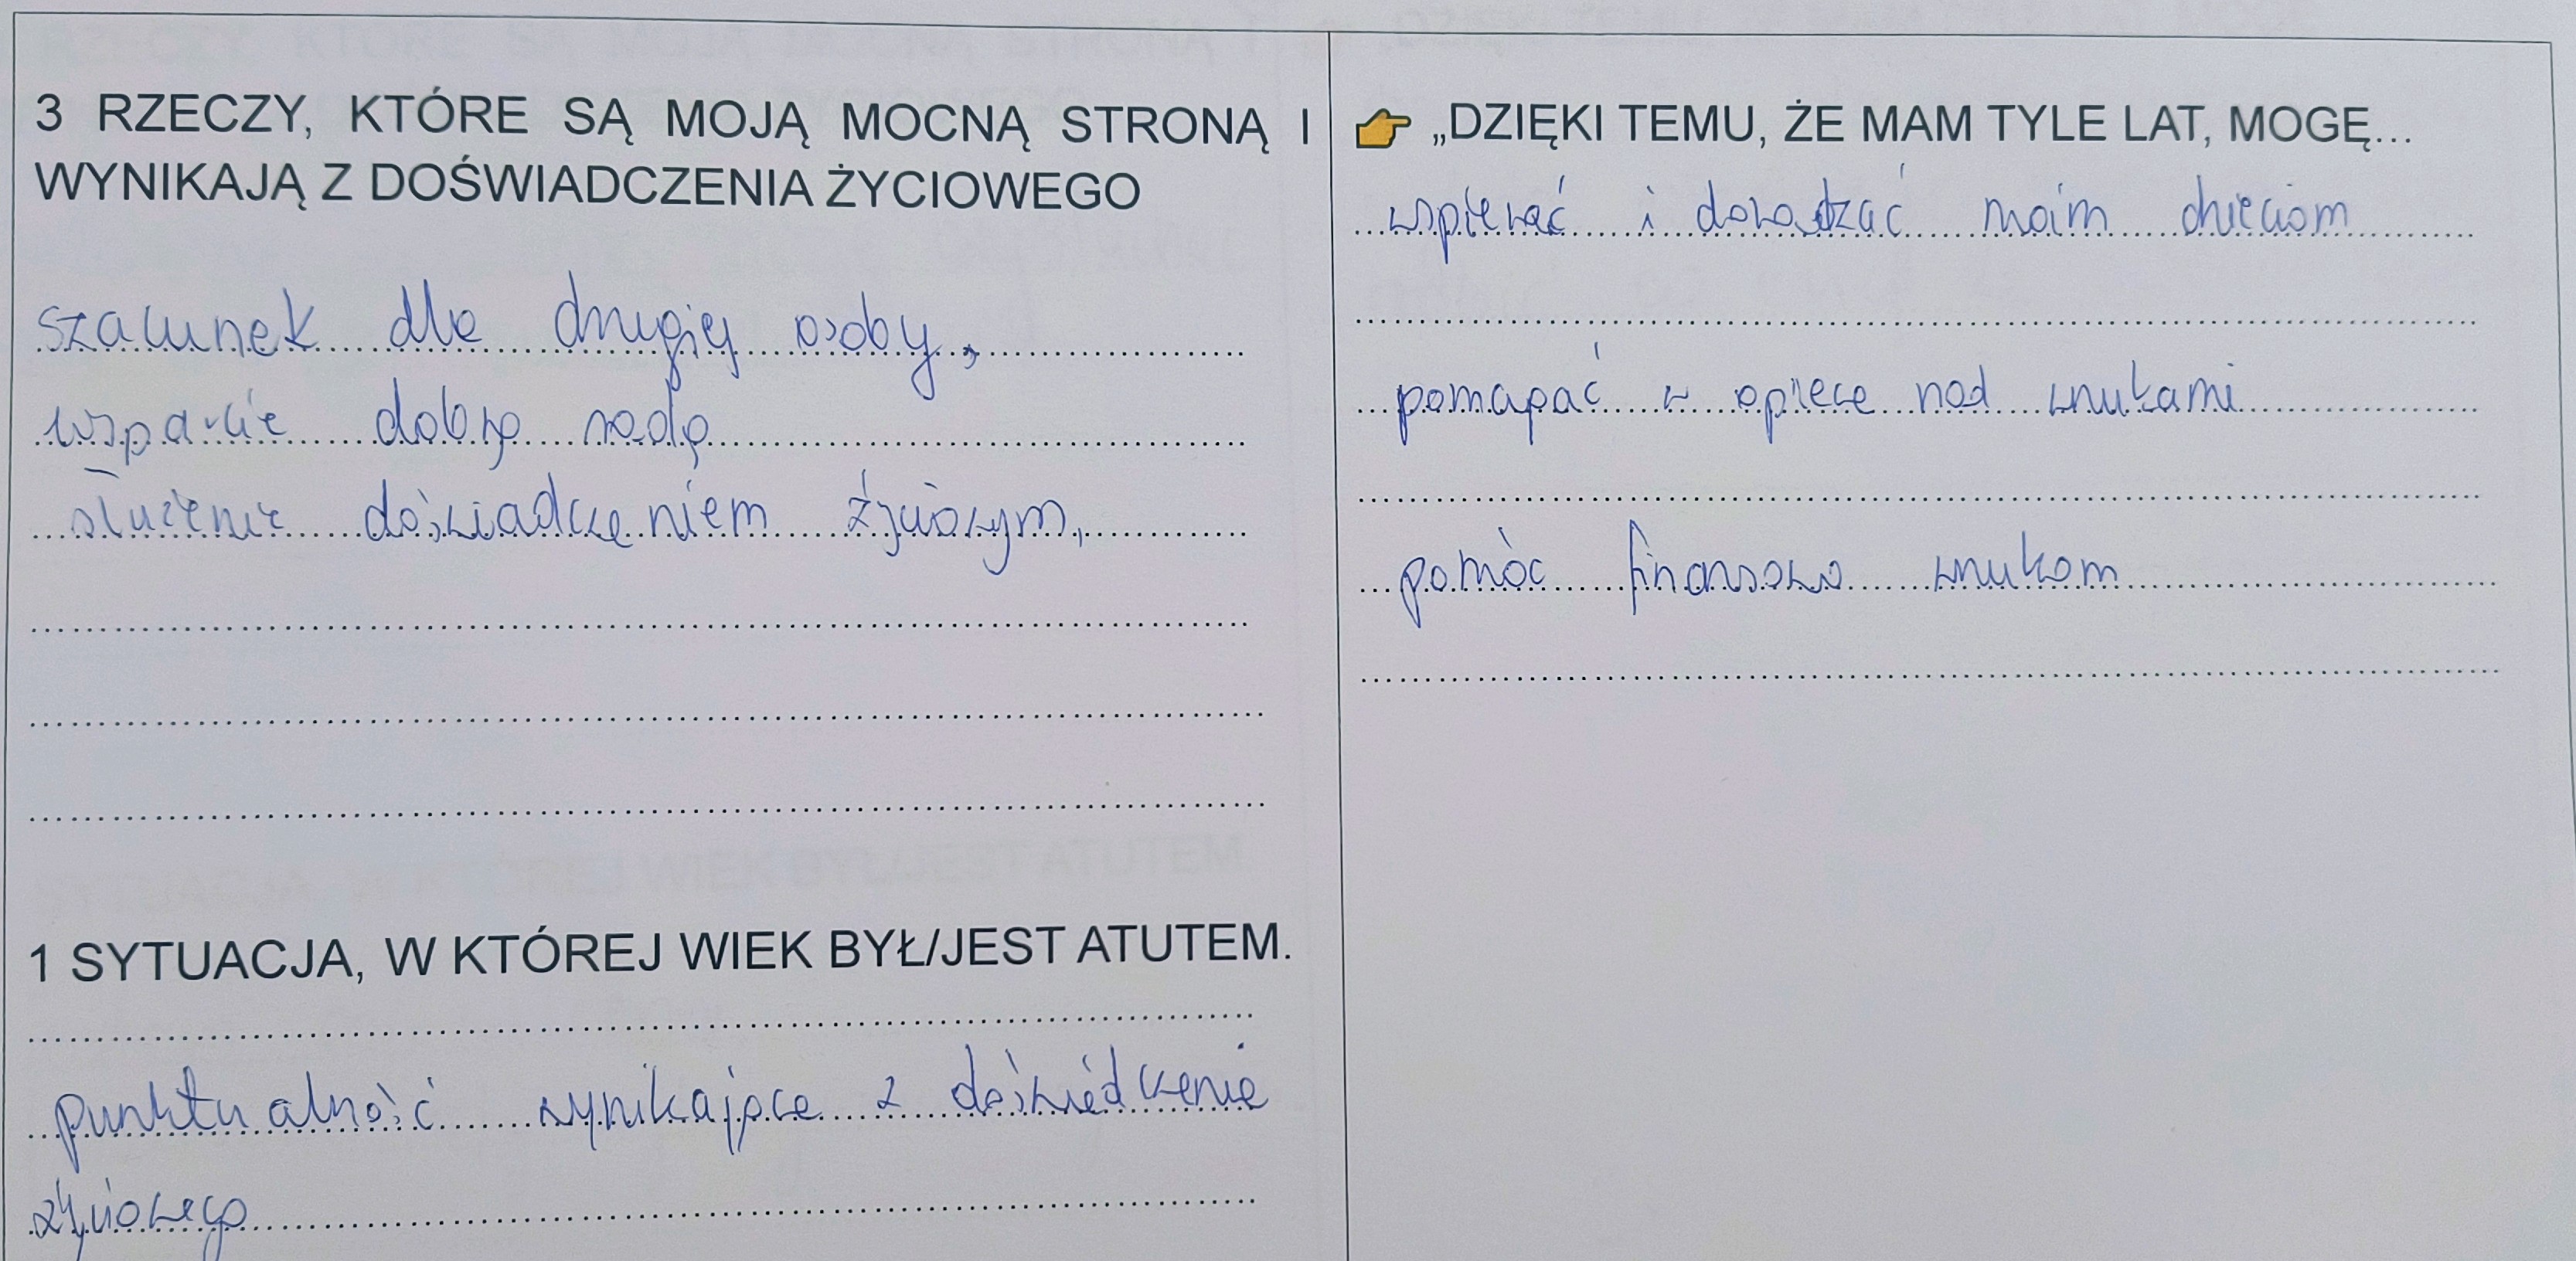 3 RZECZY, KTÓRE SĄ MOJĄ MOCNĄ STRONĄ I
WYNIKAJĄ Z DOŚWIADCZENIA ŻYCIOWEGO
szacunek dla drugiej osoby,
wsparcie dobrą radą
służenie doświadczeniem życiowym,
1 SYTUACJA, W KTÓREJ WIEK BYŁ/JEST ATUTEM.
punktualność wynikająca z doświadczenia
życiowego
👉 „DZIĘKI TEMU, ŻE MAM TYLE LAT, MOGĘ...
wspierać i doradzać moim dzieciom
pomagać w opiece nad wnukami
pomóc finansowo wnukom